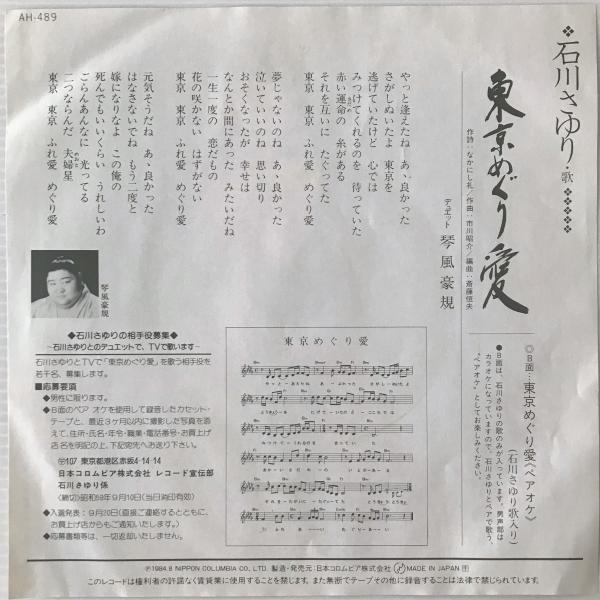 AH-489
❖石川さゆり・歌❖❖❖❖❖
東京めぐり愛
作詩:なかにし礼/作曲:市川昭介/編曲:斎藤恒夫
デュエット 琴風豪規
やっと逢えたね あゝ良かった
さがしぬいたよ 東京を
逃げていたけど 心では
みつけてくれるのを 待っていた
赤い運命の 糸がある
それを互いに たぐってた
東京 東京 ふれ愛 めぐり愛
夢じゃないのね あゝ良かった
泣いていいのね 思い切り
おそくなったが 幸せは
なんとか間にあった みたいだね
一生一度の 恋だもの
花の咲かない はずがない
東京 東京 ふれ愛 めぐり愛
元気そうだね あゝ良かった
はなさないでね もう二度と
嫁になりなよ この俺の
死んでもいいくらい うれしいわ
ごらんあんなに 光ってる
二つならんだ 夫婦星
東京 東京 ふれ愛 めぐり愛
琴風豪規
◎B面…東京めぐり愛《ペアオケ》
(石川さゆり歌入り)
●B面は、石川さゆりの歌のみが入っています。男声部は
カラオケになっていますので、石川さゆりとペアで歌う、
“ペアオケ”としてお楽しみください。
◆石川さゆりの相手役募集◆
―石川さゆりとのデュエットで、TVで歌います―
石川さゆりとTVで「東京めぐり愛」を歌う相手役を
若干名、募集します。
■応募要項
●男性に限ります。
●B面のペアオケを使用して録音したカセット・
テープと、最近3ヶ月以内に撮影した写真を添
えて、住所・氏名・年令・職業・電話番号・お買上げ
店名を明記の上、下記宛先へお送り下さい。
〒107 東京都港区赤坂4-14-14
日本コロムビア株式会社 レコード宣伝部
石川さゆり係
〈締切〉昭和59年9月10日(当日消印有効)
●入選発表:9月20日(直接ご連絡するとともに、
お買上げ店からもご通知いたします。)
●応募書類等は、一切返却いたしません。
東京めぐり愛
Ⓟ1984.8 NIPPON COLUMBIA CO., LTD. 製造・発売元:日本コロムビア株式会社 MADE IN JAPAN
このレコードは権利者の許諾なく賃貸業に使用することを禁じます。また無断でテープその他に録音することは法律で禁じられています。